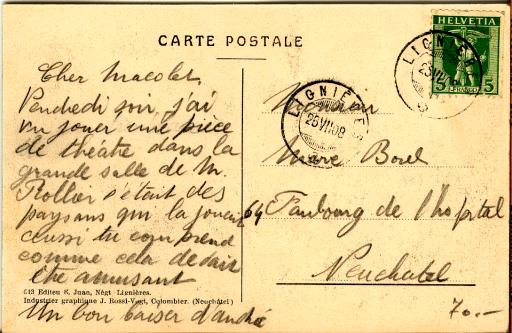 CARTE POSTALE
Cher Macolet,
Vendredi soir, j'ai
vu jouer une pièce
de théâtre dans la
grande salle de M.
Rollier s'était des
paysans qui la jouent
aussi tu comprend
comme cela devait
être amusant
613 Editeu E. Juan, Négt Lignières.
Industrier graphique J. Rossi-Vogt, Colombier. (Neuchâtel)
Un bon baiser d'andré
HELVETIA
5 5
LIGNIÈRES
25 VII
LIGNIÈRES
25 VII 08
Monsieur
Marc Borel
64 Faubourg de l'hopital
Neuchatel
70.-